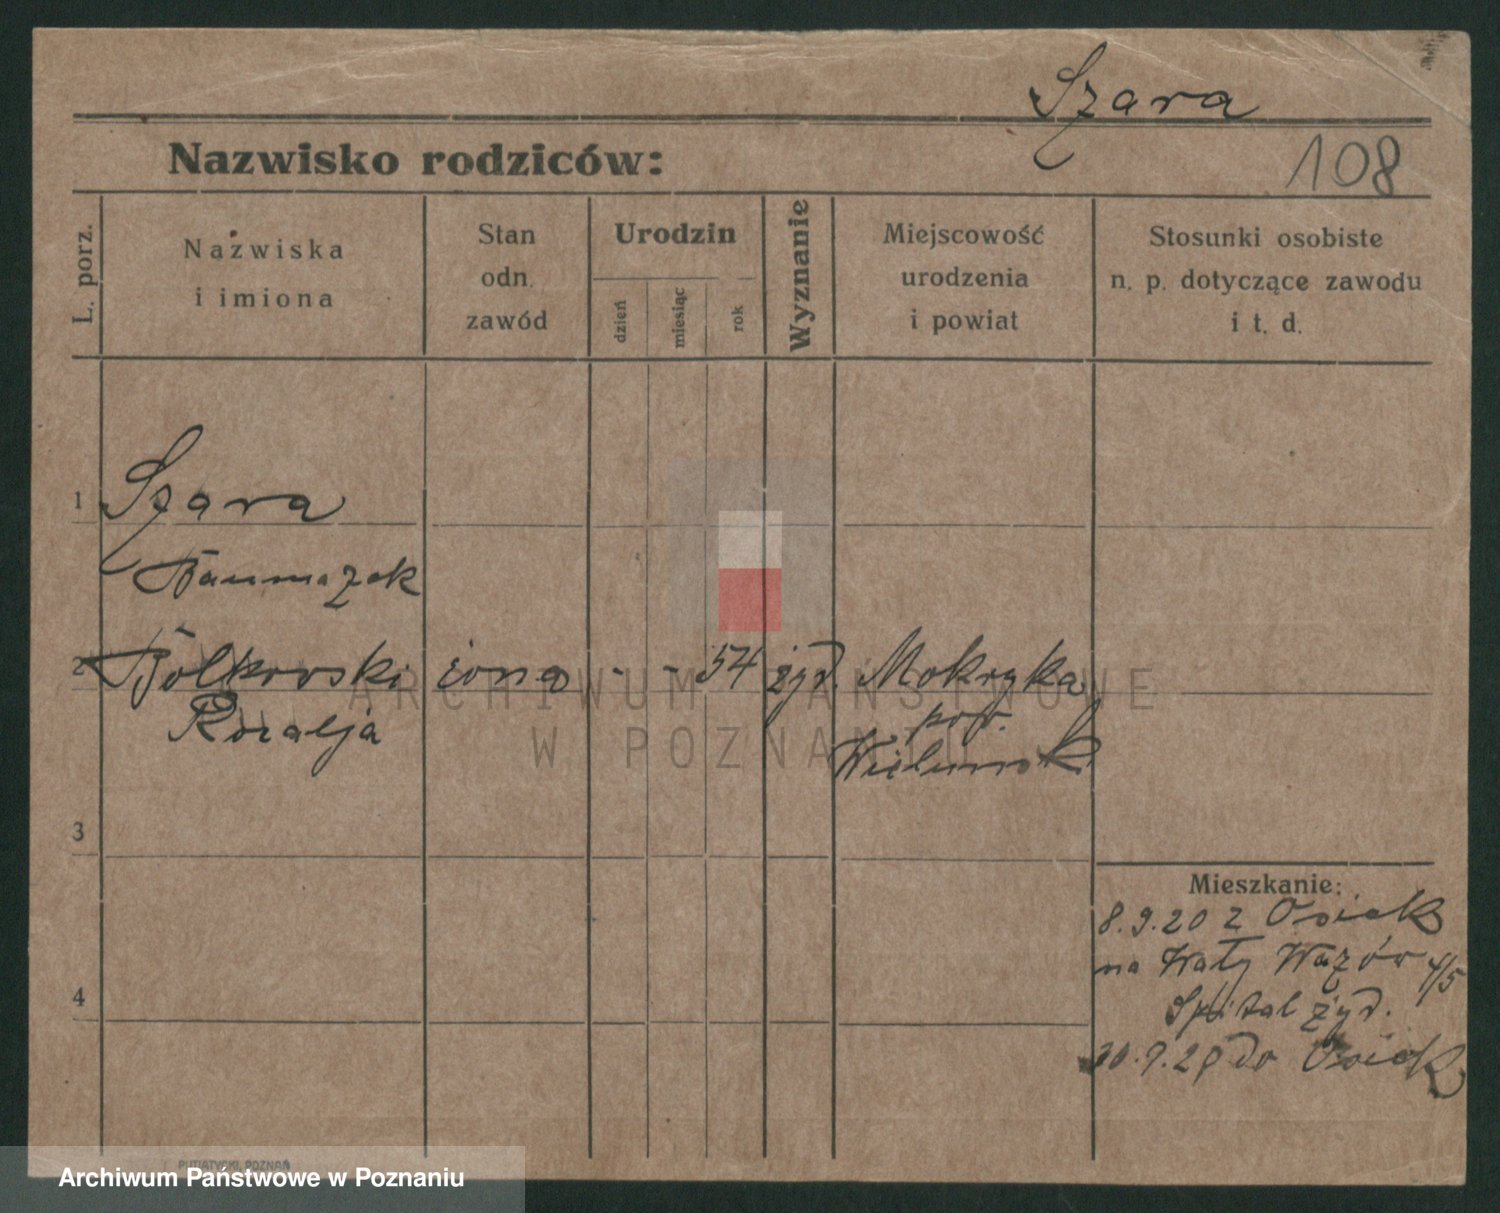 Szara
Nazwisko rodziców:
108
L. porz.
Nazwiska
i imiona
Stan
odn.
zawód
Urodzin
dzień
miesiąc
rok
Wyznanie
Miejscowość
urodzenia
i powiat
Stosunki osobiste
n. p. dotyczące zawodu
i t. d.
1 Szara
2 Bolkowski żona - - 54 żyd. Mokryka
Rozalja
pow.
Wieluński
3
4
Mieszkanie:
8.9.20 z Osiek
na Wały Wazów 4/5
Spital żyd.
do Osiek
ARCHIWUM PAŃSTWOWE
W POZNANIU
PUTIATYCKI, POZNAŃ
Archiwum Państwowe w Poznaniu